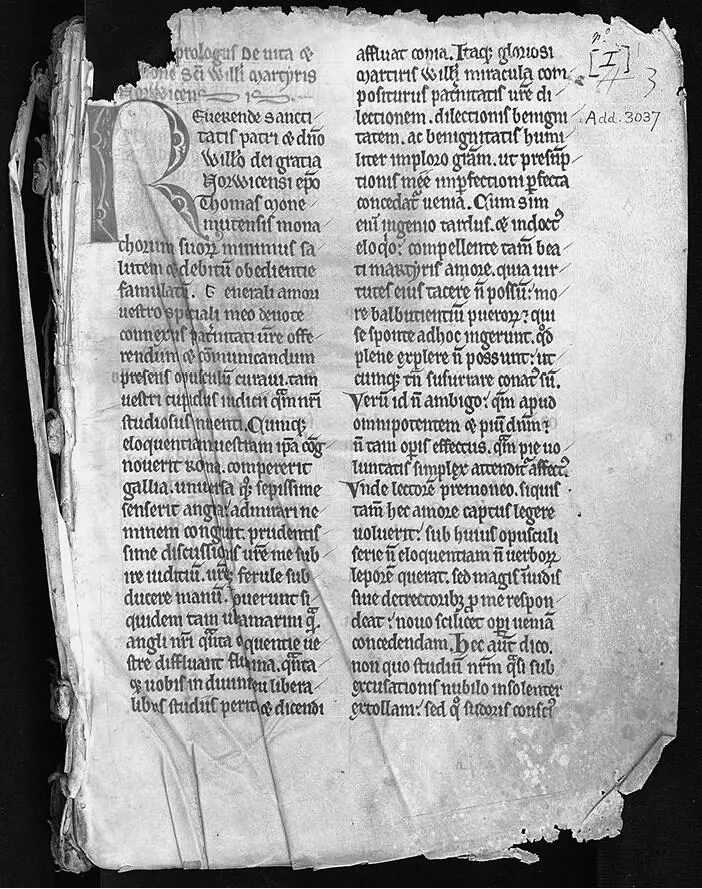 prologus de uita &
one sc̄i Will̄i martyris
Norwicensis
REuerende sancti
tatis patri & dn̄o
Will̄o dei gratia
Norwicensi ep̄o
Thomas mone
mutensis mona
chorum suoꝝ minimus sa
lutem & debitū obedientie
famulatū. Generali amori
uestro speciali meo deuote
connexus pat̄nitati ur̄e offe
rendum & cōmunicandum
presens opusculū curaui. tam
uestri cupidus iudicii qm̄ nr̄i
studiosus inuenti. Cumq;
eloquentiam uestram ip̄a cog
nouerit roma. compererit
gallia. uniuersa qͦ; sepissime
senserit anglia. admirari ne
minem congruit. prudentis
sime discussionis ur̄e me sub
re iuditiū. ur̄e; ferule sub
ducere manū. Nouerunt si
quidem tam
angli nr̄i qͣnta eloquentie ue
stre diffluant flumina. qͣnta
& uobis in diuinis seu libera
libus studiis peritia & dicendi
affluat copia. Itaq; gloriosi
martiris Will̄i miracula com
positurus pat̄nitatis ur̄e di
lectionem. dilectionis benigni
tatem. ac benignitatis humi
liter imploro gr̄am. ut presūp
tionis meę imp̄fectioni p̄fecta
concedat᷑ uenia. Cum sim
eni᷑ ingenio tardus. & indoctꝰ
eloqͦo; compellente tam̄ bea
ti martyris amore. quia uir
tutes eius tacere n̄ possū; mo
re balbutientiū pueroꝝ; qui
se sponte ad hoc ingerunt. qd̕
plene explere n̄ possunt; ut
cumq; tn̄ susurrare conat᷑ sū.
Verū id n̄ ambigo; qm̄ apud
omnipotentem & piū dnm̄;
n̄ tam op̄is effectus. qm̄ pie uo
luntatis simplex attendit᷑ affectꝰ.
Vnde lectorē premoneo. siquis
tam̄ hec amore captus legere
uoluerit; sub huius opusculi
serie n̄ eloquentiam n̄ uerboꝝ
leporē querat. sed magis īuidis
siue detrectoribꝫ ꝓ me respon
deat; nouo scilicet op̄i ueniā
concedendam. Hec aut̄ dico.
non quo studiū nr̄m qͣsi sub
excusationis nubilo insolenter
extollam; sed qͦ sudoris consciꝰ
nº
[I]
3
Add. 3037